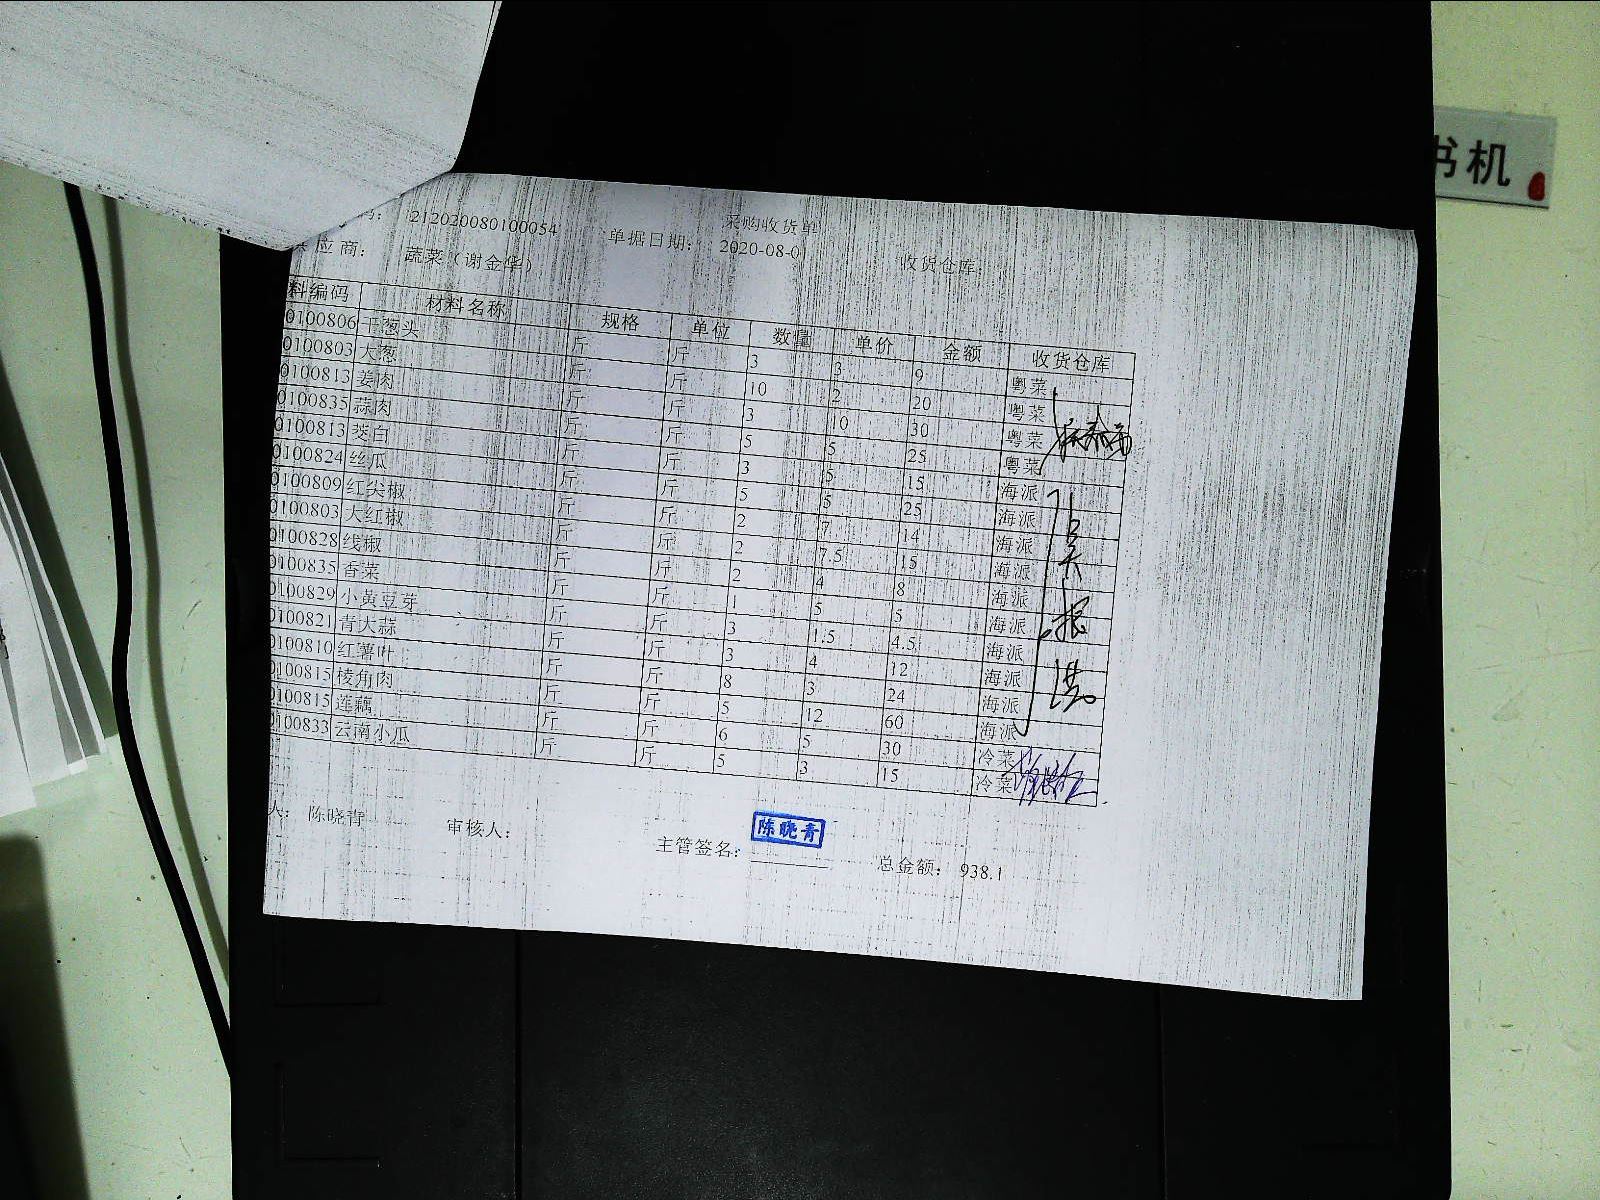 书机
采购收货单
码： 212020080100054 单据日期： 2020-08-0 收货仓库：
供应商： 蔬菜（谢金华）
料编码 材料名称 规格 单位 数量 单价 金额 收货仓库
0100806 干葱头 斤 斤 3 3 9 粤菜
0100803 大葱 斤 斤 10 2 20 粤菜
0100813 姜肉 斤 斤 3 10 30 粤菜
0100835 蒜肉 斤 斤 5 5 25 粤菜
0100813 茭白 斤 斤 3 5 15 海派
0100824 丝瓜 斤 斤 5 5 25 海派
0100809 红尖椒 斤 斤 2 7 14 海派
0100803 大红椒 斤 斤 2 7.5 15 海派
0100828 线椒 斤 斤 2 4 8 海派
0100835 香菜 斤 斤 1 5 5 海派
0100829 小黄豆芽 斤 斤 3 1.5 4.5 海派
0100821 青大蒜 斤 斤 3 4 12 海派
0100810 红薯叶 斤 斤 8 3 24 海派
0100815 棱角肉 斤 斤 5 12 60 海派
0100815 莲藕 斤 斤 6 5 30 冷菜
0100833 云南小瓜 斤 斤 5 3 15 冷菜
人： 陈晓青 审核人： 主管签名： 陈晓青 总金额： 938.1